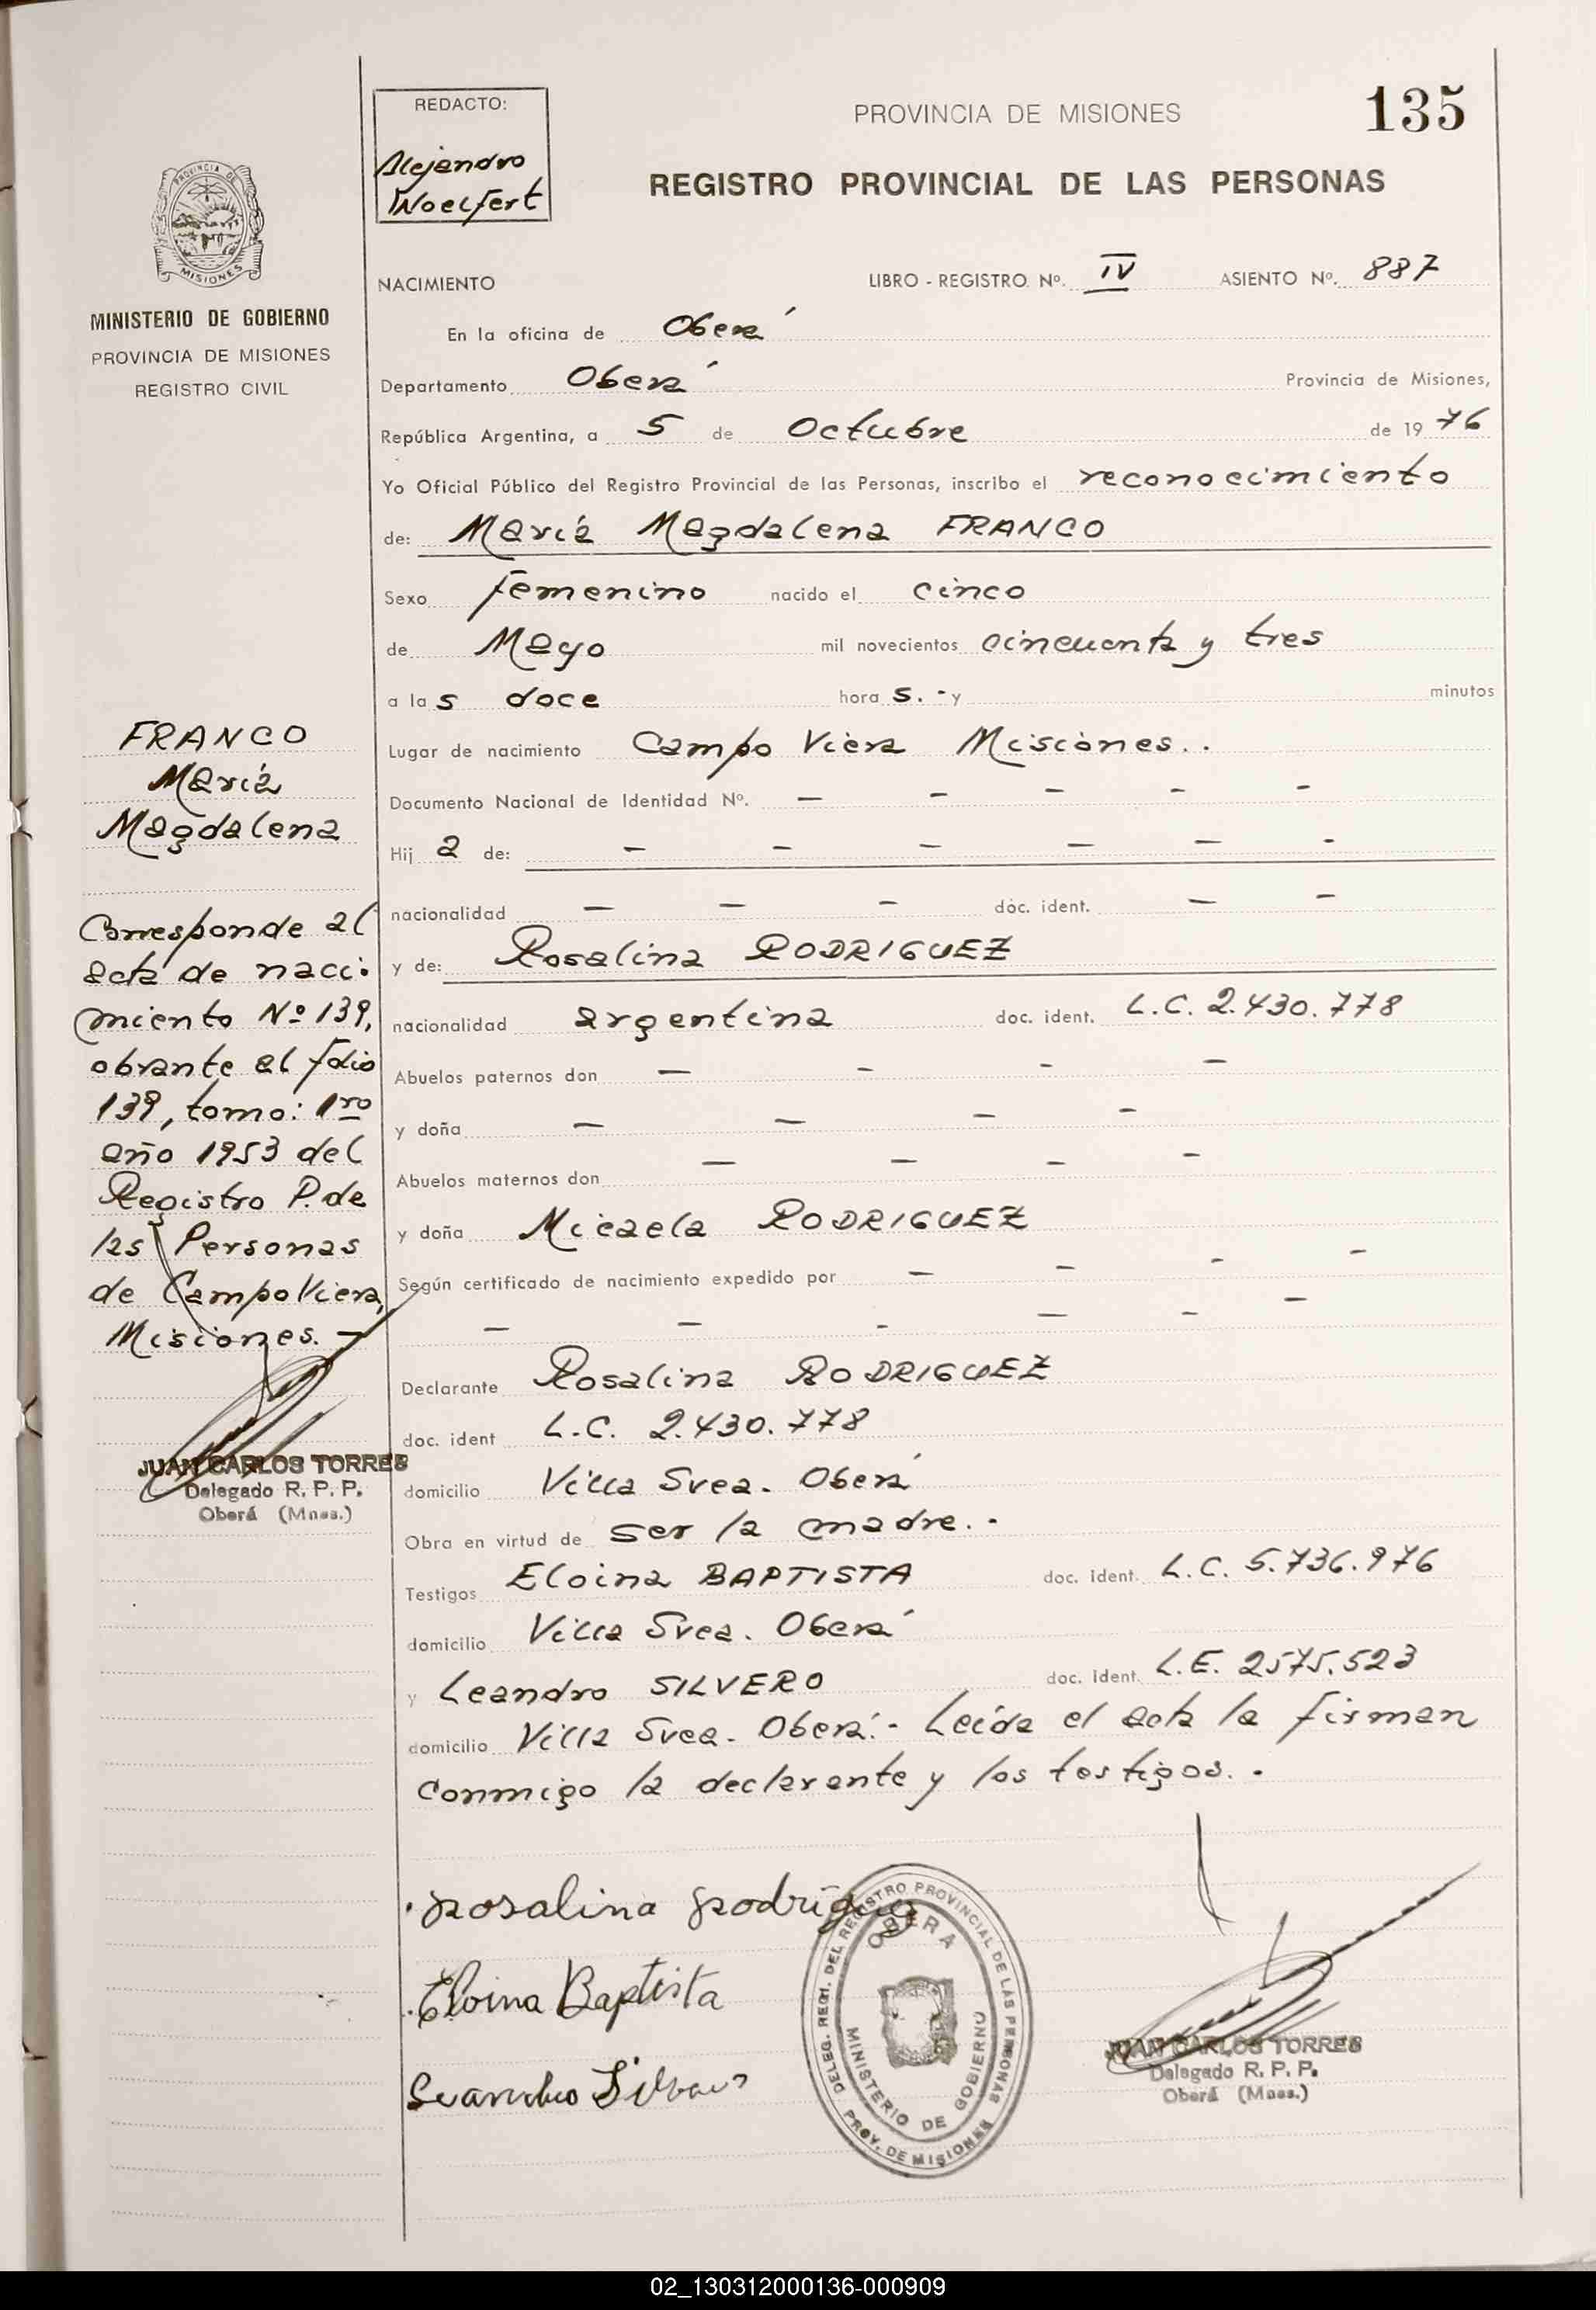 REDACTO:
Alejandro
Noelfert
PROVINCIA DE MISIONES
135
REGISTRO PROVINCIAL DE LAS PERSONAS
PROVINCIA DE
MISIONES
MINISTERIO DE GOBIERNO
PROVINCIA DE MISIONES
REGISTRO CIVIL
NACIMIENTO LIBRO - REGISTRO Nº. IV ASIENTO Nº. 887
En la oficina de Oberá
Departamento Oberá Provincia de Misiones,
República Argentina, a 5 de Octubre de 19 76
Yo Oficial Público del Registro Provincial de las Personas, inscribo el reconocimiento
de: María Magdalena FRANCO
Sexo femenino nacido el cinco
de Mayo mil novecientos cincuenta y tres
a las doce horas.- y minutos
Lugar de nacimiento Campo Viera Misiones..
Documento Nacional de Identidad Nº. — — — — —
Hija de: — — — — — -
nacionalidad — — — doc. ident. — —
y de: Rosalina RODRIGUEZ
nacionalidad argentina doc. ident. L.C. 2.430.778
Abuelos paternos don — — — —
y doña — — — —
Abuelos maternos don — — — —
y doña Micaela RODRIGUEZ
Según certificado de nacimiento expedido por — — — —
— — — — — —
Declarante Rosalina RODRIGUEZ
doc. ident L.C. 2.430.778
domicilio Villa Svea. Oberá
Obra en virtud de ser la madre.-
Testigos Eloina BAPTISTA doc. ident. L.C. 5.736.976
domicilio Villa Svea. Oberá
y Leandro SILVERO doc. ident. L.E. 2575.523
domicilio Villa Svea. Oberá.- Leída el acta la firman
conmigo la declarante y los testigos. -
FRANCO
María
Magdalena
Corresponde al
acta de naci-
miento Nº 139,
obrante al folio
139, tomo: 1ro
año 1953 del
Registro P. de
las Personas
de Campo Viera,
Misiones. -
JUAN CARLOS TORRES
Delegado R. P. P.
Oberá (Mnes.)
Rosalina Rodriguez
Eloina Baptista
Leandro Silvero
DELEG. REGI. DEL REGISTRO PROVINCIAL DE LAS PERSONAS
OBERA
MINISTERIO DE GOBIERNO
PROV. DE MISIONES
JUAN CARLOS TORRES
Delegado R. P. P.
Oberá (Mnes.)
02_130312000136-000909